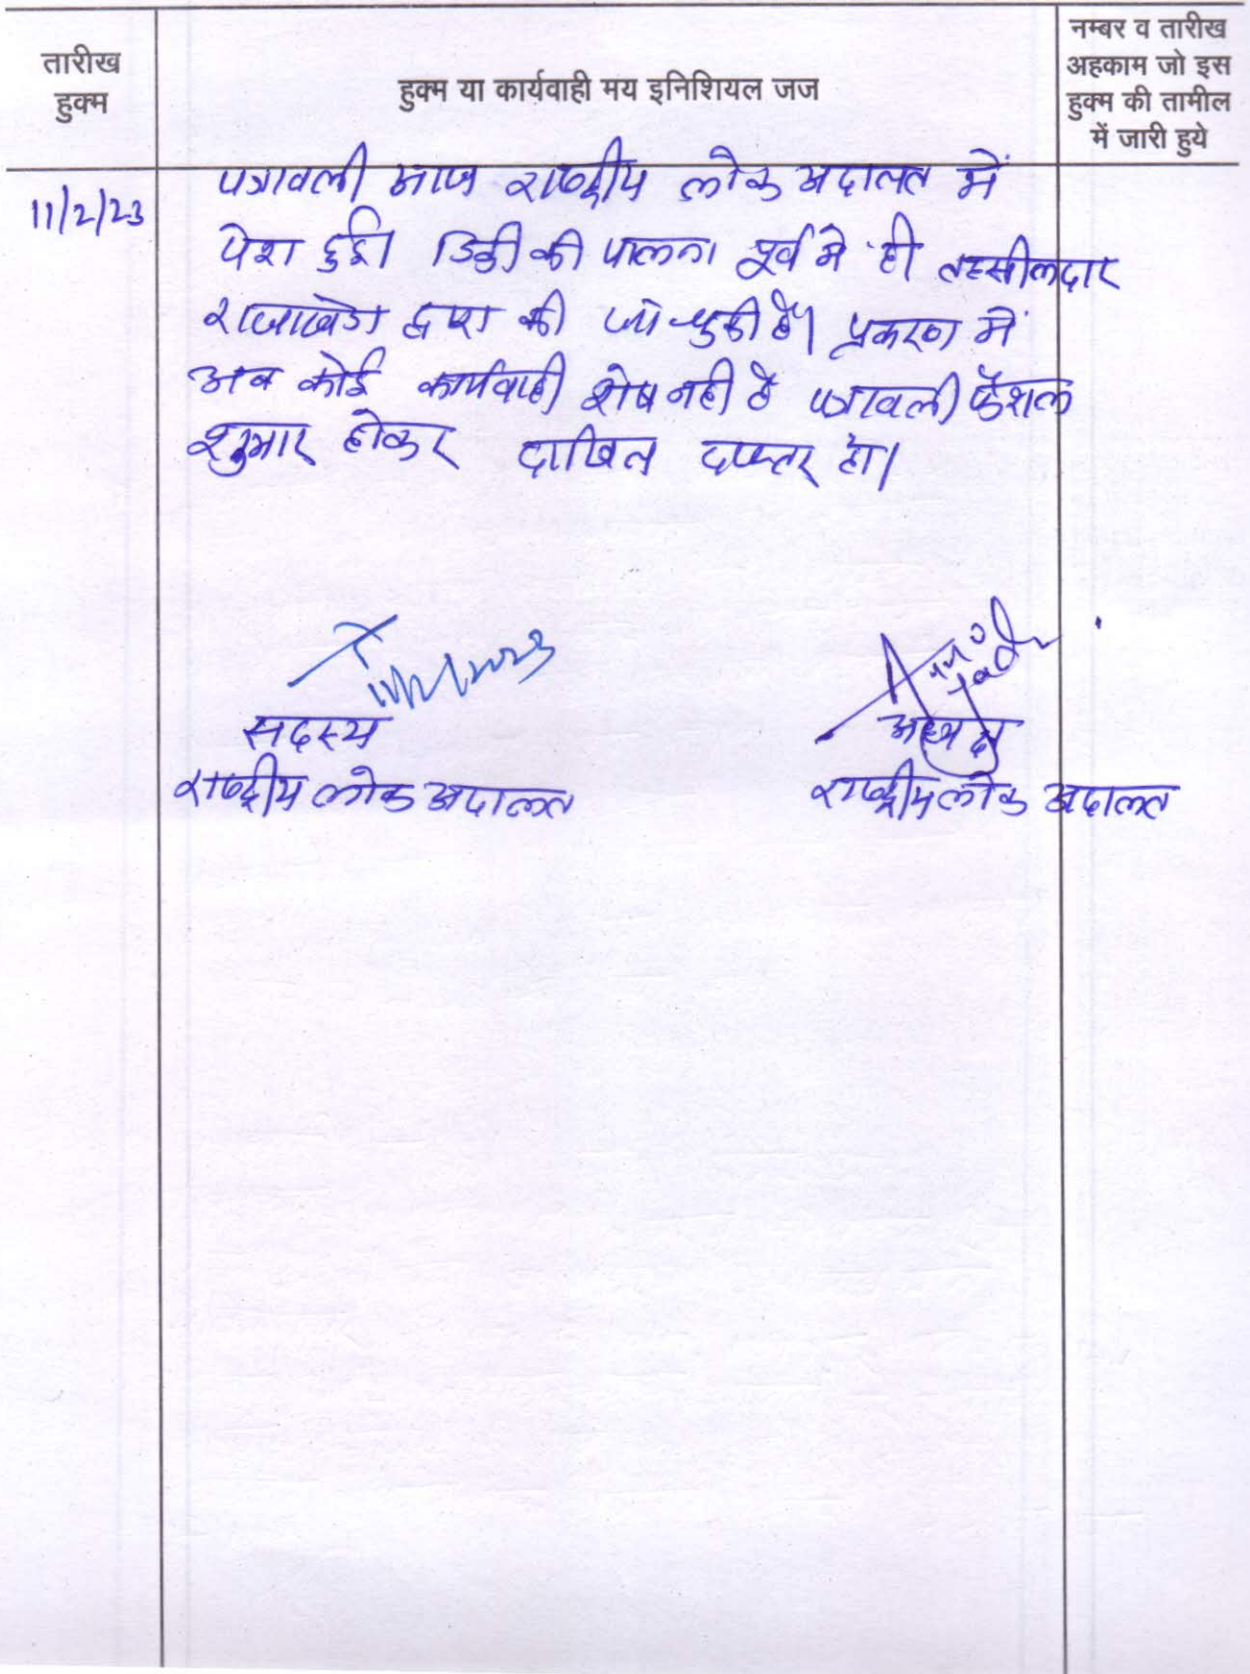 तारीख
हुक्म
हुक्म या कार्यवाही मय इनिशियल जज
नम्बर व तारीख
अहकाम जो इस
हुक्म की तामील
में जारी हुये
11/2/23
पत्रावली आज राष्ट्रीय लोक अदालत में
पेश हुई। डिक्री की पालना पूर्व मे ही तहसीलदार
राजाखेडा द्वारा की जा चुकी है। प्रकरण में
अब कोई कार्यवाही शेष नही है पत्रावली फैशल
शुमार होकर दाखिल दफ्तर हो।
11/2/2023
सदस्य
राष्ट्रीय लोक अदालत
अध्यक्ष
राष्ट्रीय लोक अदालत